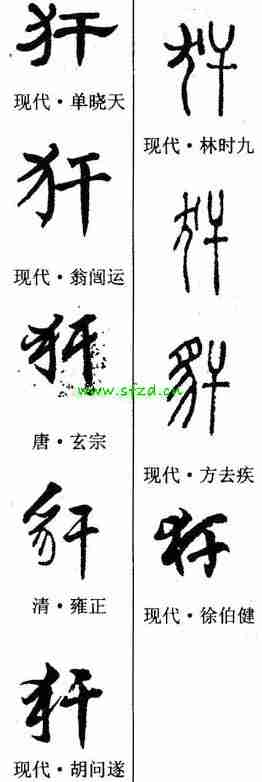 犴
现代·单晓天
犴
现代·翁闿运
犴
唐·玄宗
豻
清·雍正
犴
现代·胡问遂
犴
现代·林时九
犴
豻
现代·方去疾
犴
现代·徐伯健
www.sfzd.cn